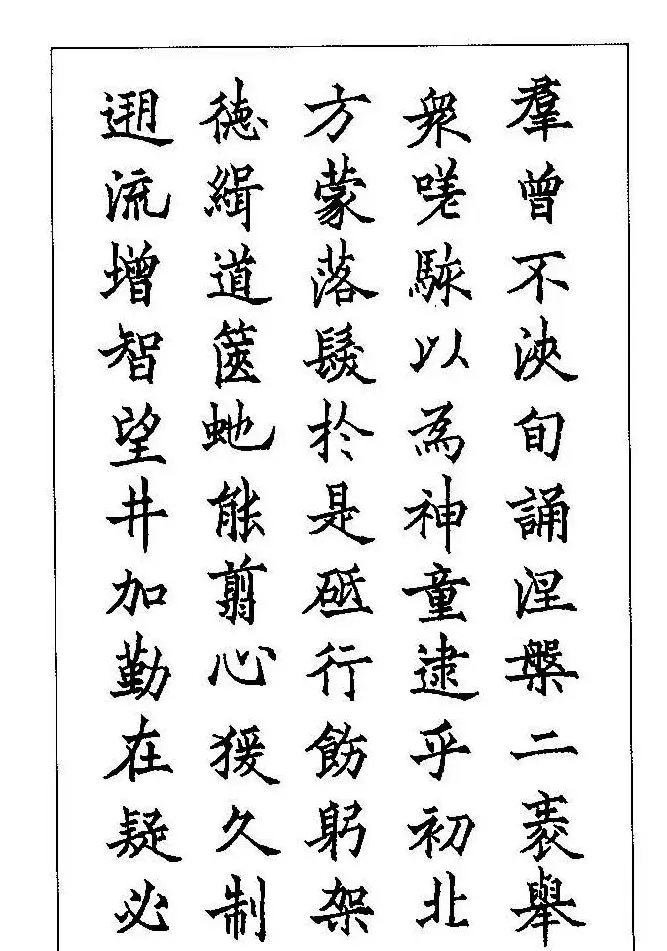 羣曾不浹旬誦涅槃二袠舉
衆嗟駭以為神童逮乎初北
方蒙落髮於是砥行飭躬架
徳緝道篋虵能翦心猨久制
遡流增智望井加勤在疑必